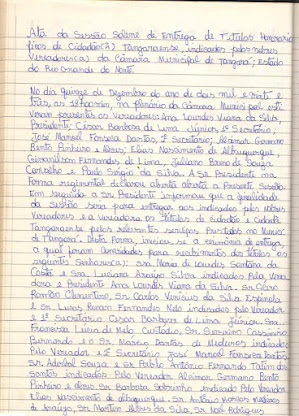 Ata da Sessão Solene de Entrega de Títulos Honorari
ficos de Cidadão(ã) Tangaraense, indicados pelos nobres
Vereadores(a) da Câmara Municipal de Tangará, Estado
do Rio Grande do Norte.
No dia quinze de Dezembro do ano de dois mil e vinte e
três, às 18 horas, no plenário da Câmara Municipal esti
veram presentes os vereadores: Ana Lourdes Viana da Silva,
Presidente; César Barbosa de Lima Júnior, 1º Secretário,
José Manoel Fonseca Dantas, 2º Secretário; Aldemar Germano
Bento Pinheiro e Alves; Elias Nascimento de Albuquerque,
Girmarilson Fernandes de Lima, Juliano Bruno de Souza
Carvelho e Paulo Sérgio da Silva. A Srª Presidente na
forma regimental declarou aberta a Presente Sessão.
Em seguida a Srª Presidente informou que a finalidade
da sessão seria para entregar aos indicados pelos nobres
Vereadores e a Vereadora os títulos de cidadão e cidadã
Tangaraense pelos relevantes serviços Prestados no Munici
de Tangará. Desta forma, iniciou-se a cerimônia de entrega,
a qual foram convidados para recebimento dos títulos os
seguintes Senhores(a): Sra. Maria de Lourdes Santana da
Costa e Sra. Luciana Araújo Silva indicadas pela Verea
dora e Presidente Ana Lourdes Viana da Silva. Sr. César
Ramão Clementino, Sr. Carlos Vinicius da Silva Espinola
e Sr. Lucas Renan Fernandes Melo indicados pelo Vereador
e 1º Secretário César Barbosa de Lima Júnior. Sra.
Francisca Lucia de Melo Custódio, Sr. Geronimo Cassimiro
Bernardo e o Sr. Marcio Dantas de Medeiros indicados
Pelo Vereador e 2º Secretário José Manoel Fonseca Dantas.
Sr. Adeilson Souza e Sr. Pablo Antônio Fernando Tatim dos
Santos indicados Pelo Vereador Aldemar Germano Bento
Pinheiro e Alves. Sr. Barbosa Sobrinho indicado Pelo Vereador
Elias Nascimento de Albuquerque. Sr. Antônio Marcos
de Araújo, Sr. Martins Alves da Silva, Sr. Joel Rodrigues